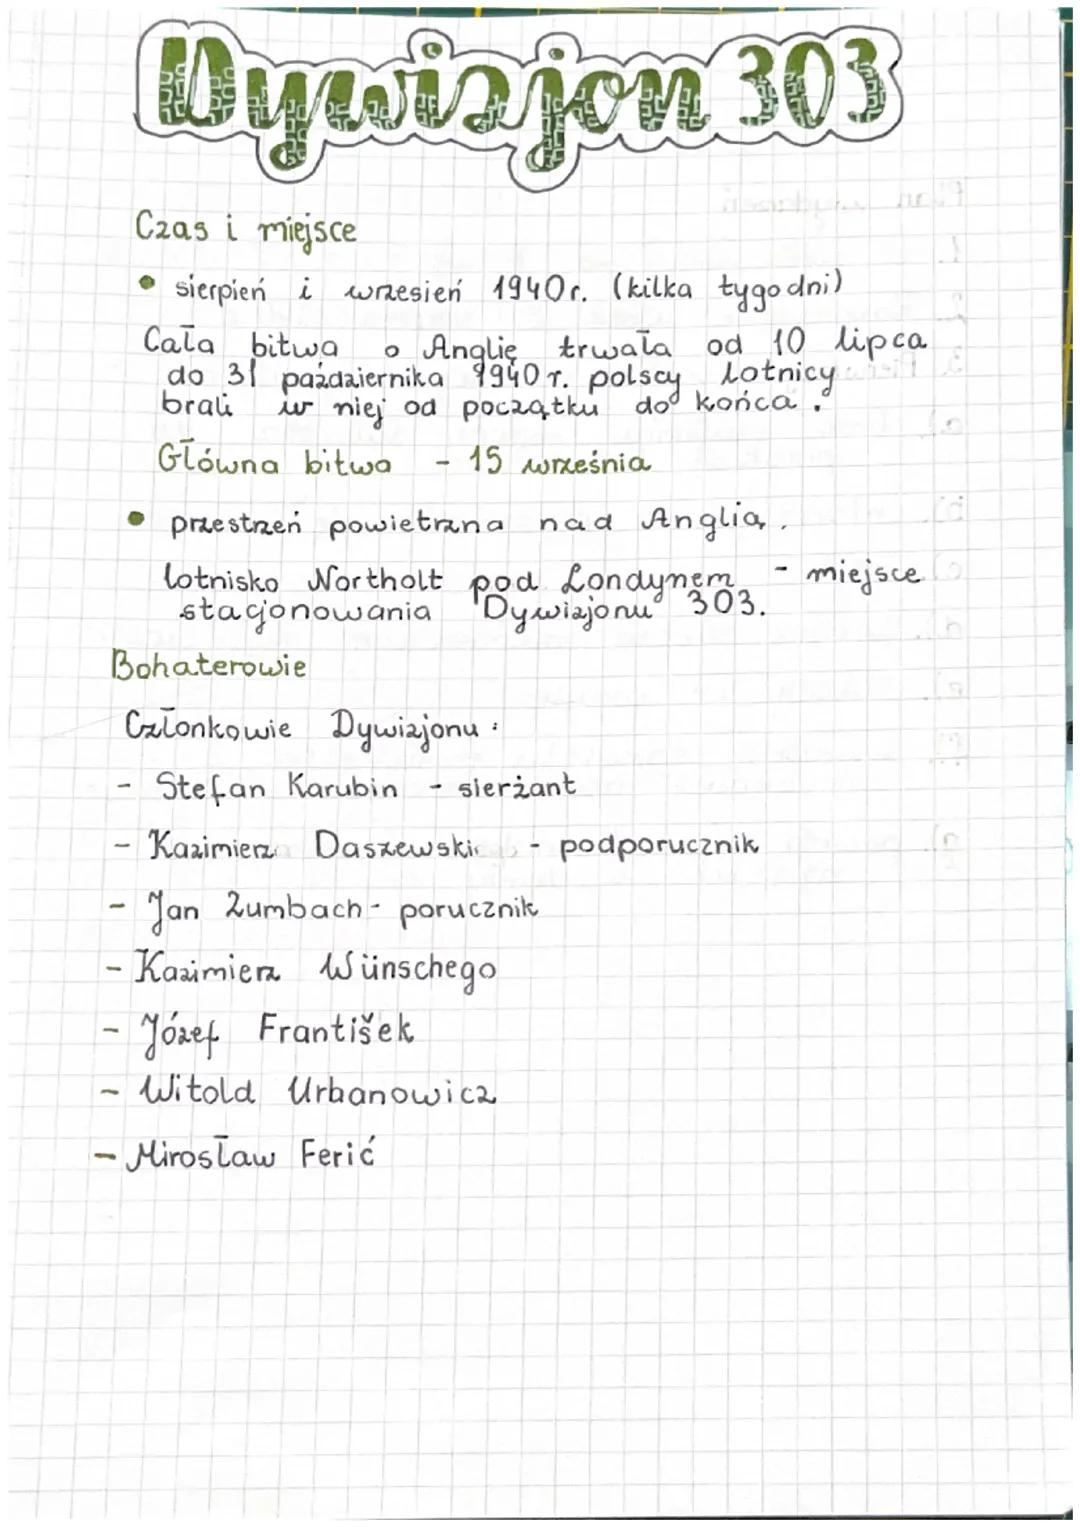 Dywizjon 303
Czas i miejsce
• sierpień i wrzesień 1940r. (kilka tygodni)
Cała bitwa o Anglię trwała od 10 lipca
do 31 października 1940r. polscy lotnicy
brali w niej od początku do końca.
Główna bitwa - 15 września
• przestrzeń powietrzna nad Anglią.
lotnisko Northolt pod Londynem - miejsce
stacjonowania Dywizjonu 303.
Bohaterowie
Członkowie Dywizjonu:
- Stefan Karubin - sierżant
- Kazimierz Daszewski - podporucznik
- Jan Zumbach - porucznik
- Kazimierz Wünschego
- Józef František
- Witold Urbanowicz
- Mirosław Ferić